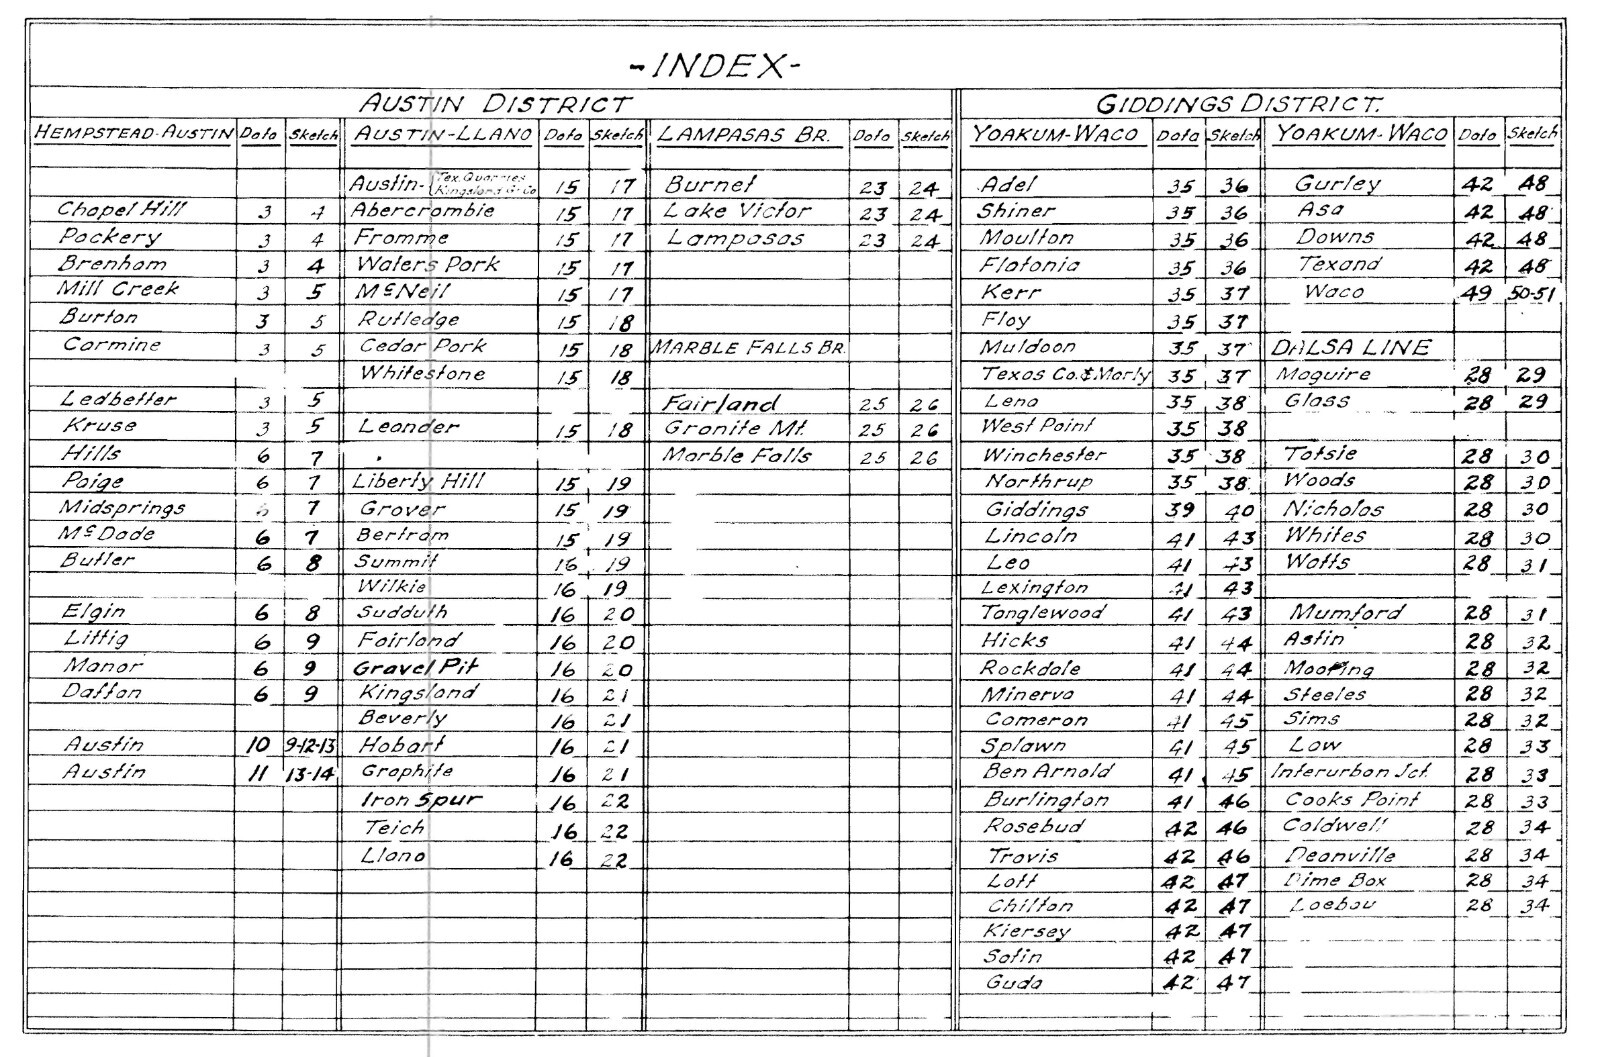 -INDEX-
AUSTIN DISTRICT GIDDINGS DISTRICT.
HEMPSTEAD-AUSTIN Data Sketch AUSTIN-LLANO Data Sketch LAMPASAS BR. Data Sketch YOAKUM-WACO Data Sketch YOAKUM-WACO Data Sketch
Austin- Tex. Quarries Kingsland G. Co 15 17 Burnet 23 24 Adel 35 36 Gurley 42 48
Chapel Hill 3 4 Abercrombie 15 17 Lake Victor 23 24 Shiner 35 36 Asa 42 48
Pockery 3 4 Fromme 15 17 Lampasas 23 24 Moulton 35 36 Downs 42 48
Brenham 3 4 Waters Park 15 17 Flatonia 35 36 Texand 42 48
Mill Creek 3 5 McNeil 15 17 Kerr 35 37 Waco 49 50-51
Burton 3 5 Rutledge 15 18 Floy 35 37
Carmine 3 5 Cedar Park 15 18 MARBLE FALLS BR. Muldoon 35 37 DALSA LINE
Whitestone 15 18 Texas Co. & Marly 35 37 Maguire 28 29
Ledbetter 3 5 Fairland 25 26 Lena 35 38 Glass 28 29
Kruse 3 5 Leander 15 18 Granite Mt. 25 26 West Point 35 38
Hills 6 7 Marble Falls 25 26 Winchester 35 38 Totsie 28 30
Paige 6 7 Liberty Hill 15 19 Northrup 35 38 Woods 28 30
Midsprings 7 Grover 15 19 Giddings 39 40 Nicholas 28 30
McDade 6 7 Bertram 15 19 Lincoln 41 43 Whites 28 30
Butler 6 8 Summit 16 19 Leo 41 43 Watts 28 31
Wilkie 16 19 Lexington 41 43
Elgin 6 8 Sudduth 16 20 Tanglewood 41 43 Mumford 28 31
Littig 6 9 Fairland 16 20 Hicks 41 44 Astin 28 32
Manor 6 9 Gravel Pit 16 20 Rockdale 41 44 Mooring 28 32
Daffan 6 9 Kingsland 16 21 Minerva 41 44 Steeles 28 32
Beverly 16 21 Cameron 41 45 Sims 28 32
Austin 10 9-12-13 Hobart 16 21 Splawn 41 45 Law 28 33
Austin 11 13-14 Graphite 16 21 Ben Arnold 41 45 Interurban Jct. 28 33
Iron Spur 16 22 Burlington 41 46 Cooks Point 28 33
Teich 16 22 Rosebud 42 46 Caldwell 28 34
Llano 16 22 Travis 42 46 Deanville 28 34
Lott 42 47 Dime Box 28 34
Chilton 42 47 Loebau 28 34
Kiersey 42 47
Satin 42 47
Guda 42 47